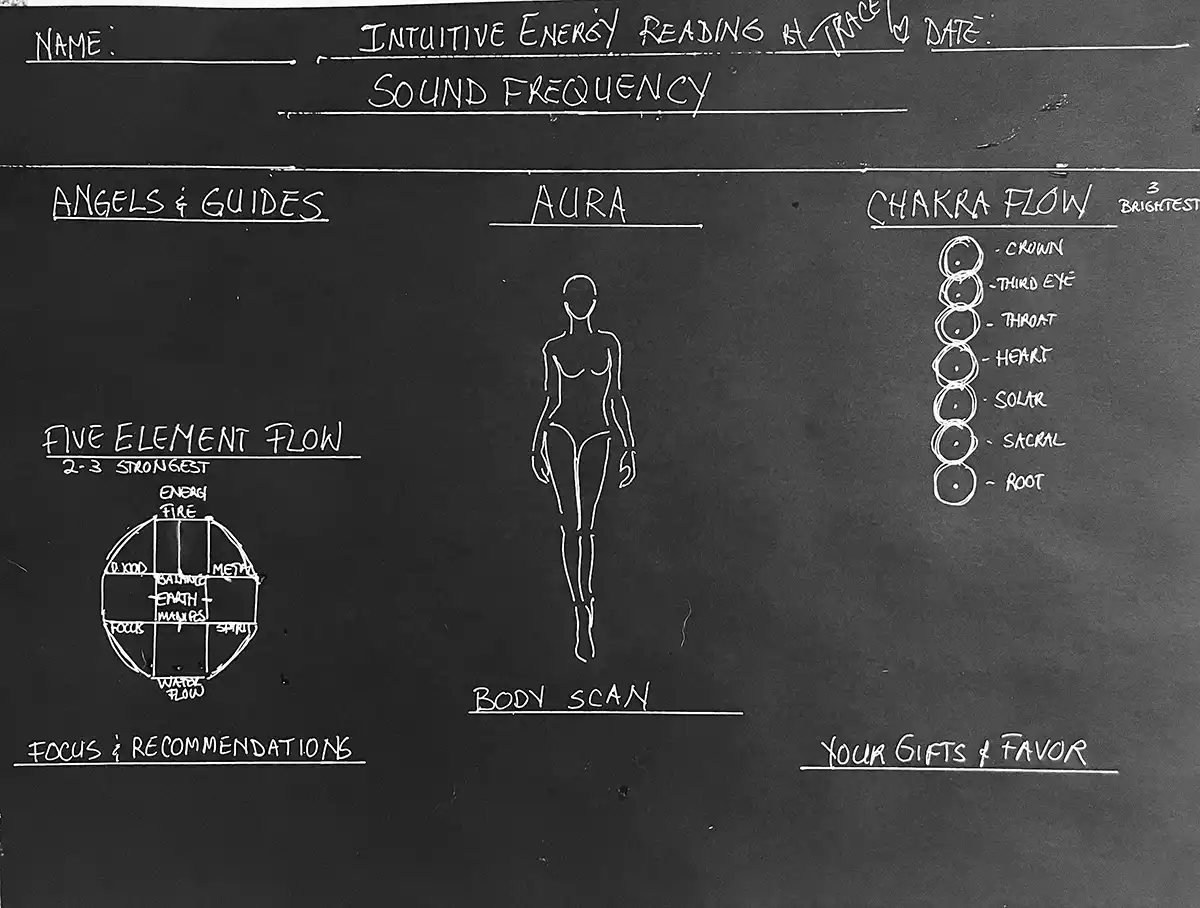 NAME:
INTUITIVE ENERGY READING BY TRACEY
DATE:
SOUND FREQUENCY
ANGELS & GUIDES
AURA
CHAKRA FLOW
3
BRIGHTEST
- CROWN
- THIRD EYE
- THROAT
- HEART
- SOLAR
- SACRAL
- ROOT
FIVE ELEMENT FLOW
2-3 STRONGEST
ENERGY
FIRE
WOOD
METAL
BALANCE
EARTH
MANIFES
FOCUS
SPIRIT
WATER
FLOW
BODY SCAN
FOCUS & RECOMMENDATIONS
YOUR GIFTS & FAVOR